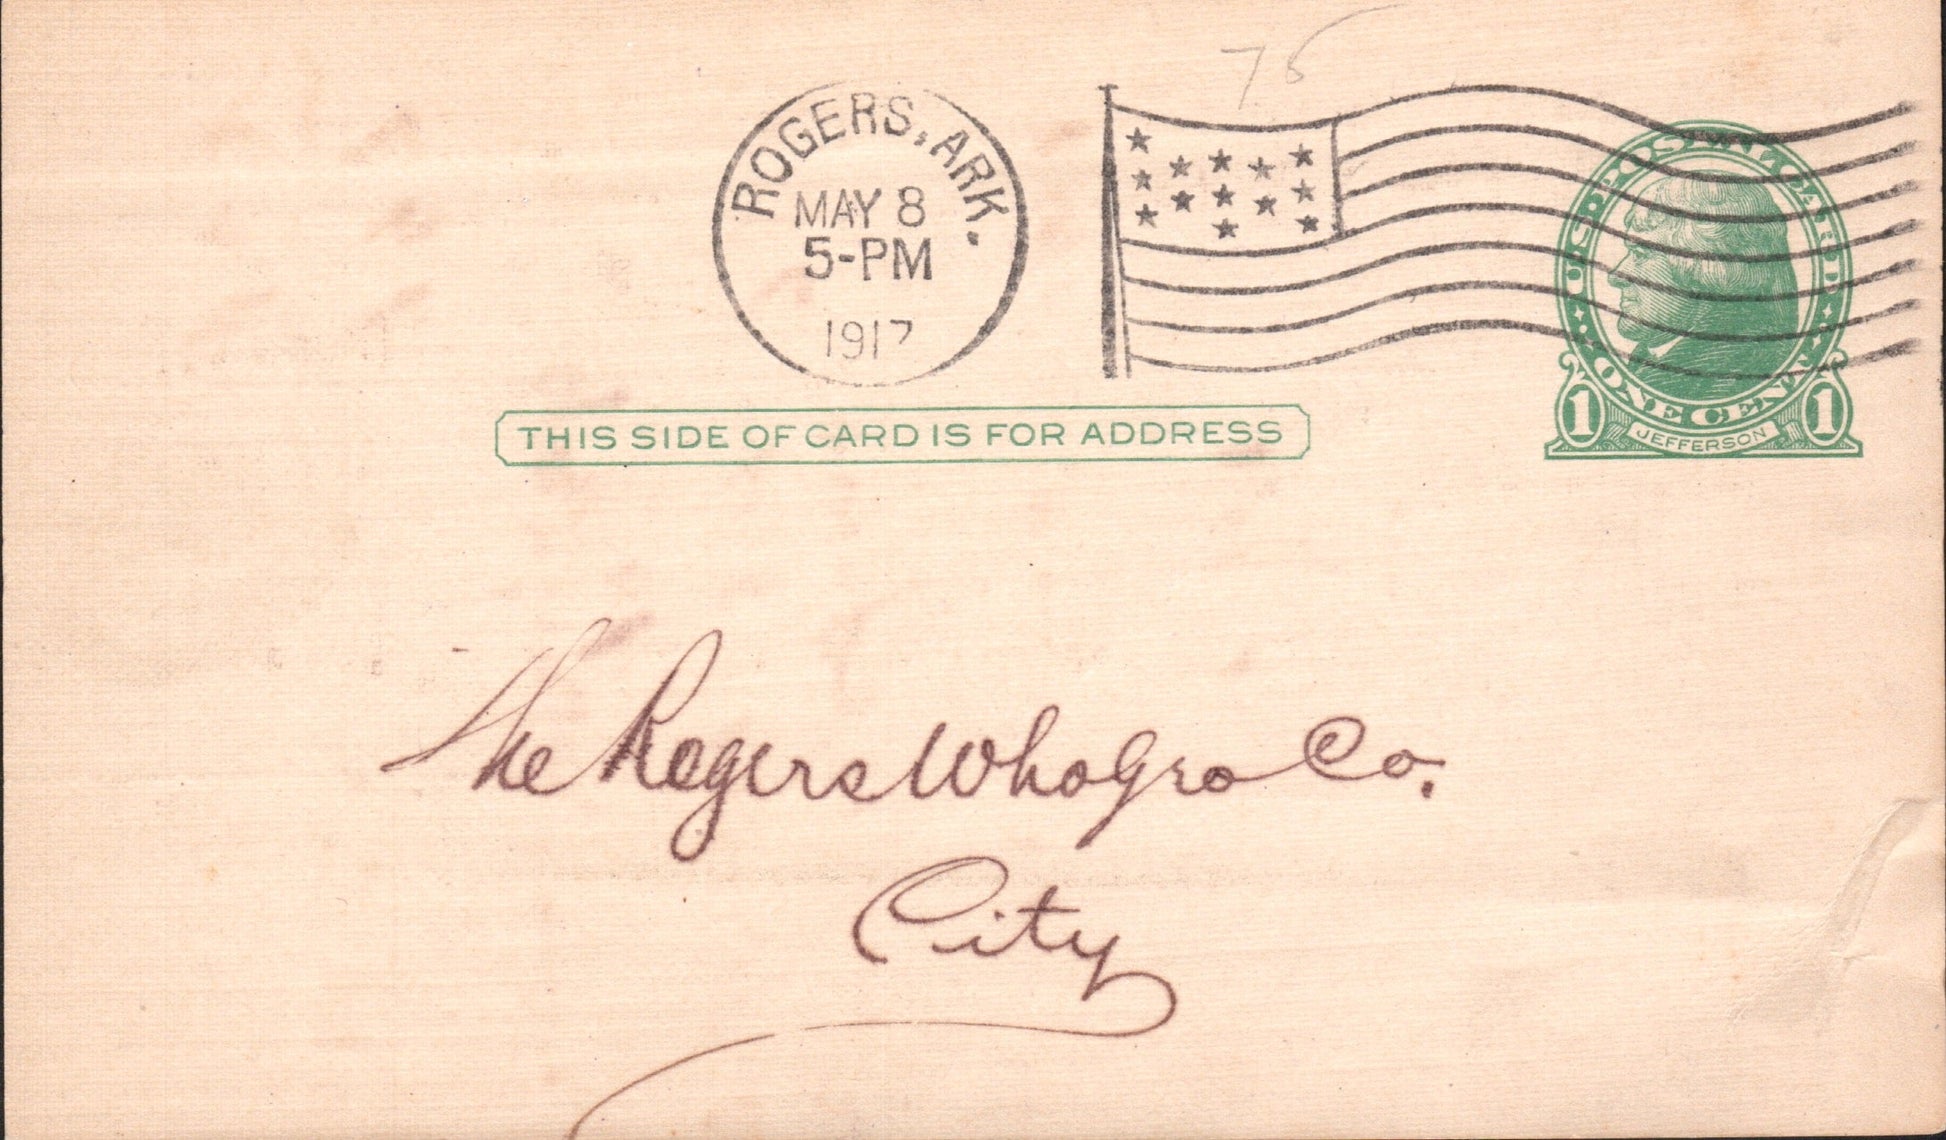 75
ROGERS, ARK.
MAY 8
5-PM
1917
U.S. POSTAL CARD
ONE CENT
1 JEFFERSON 1
THIS SIDE OF CARD IS FOR ADDRESS
The Rogers Who Gro Co.
City